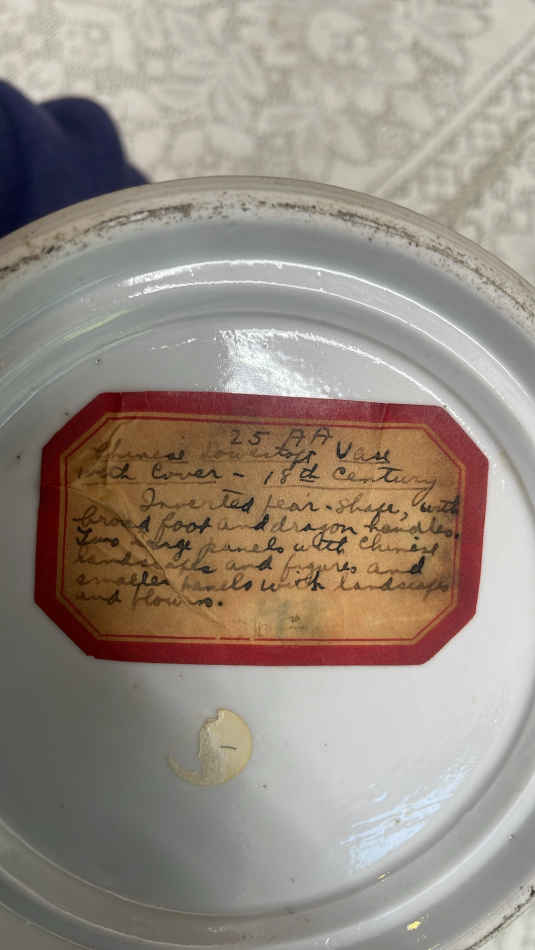 25 AA
Chinese Lowestoft Vase
with Cover - 18th Century
Inverted pear-shape, with
broad foot and dragon handles.
Two large panels with Chinese
landscapes and figures and
smaller panels with landscapes
and flowers.